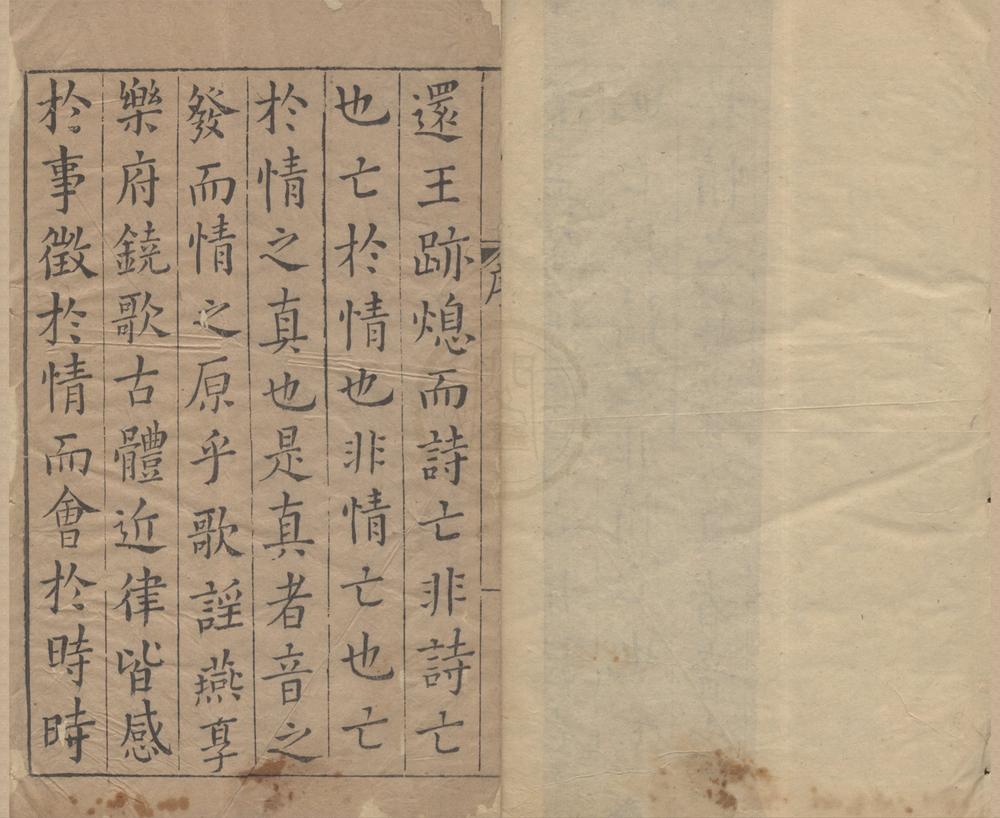 還王跡熄而詩亡非詩亡
也亡於情也非情亡也亡
於情之真也是真者音之
發而情之原乎歌謡燕享
樂府鐃歌古體近律皆感
於事徵於情而會於時時